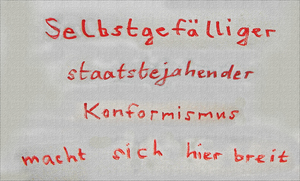 Selbstgefälliger
staatsbejahender
Konformismus
macht sich hier breit